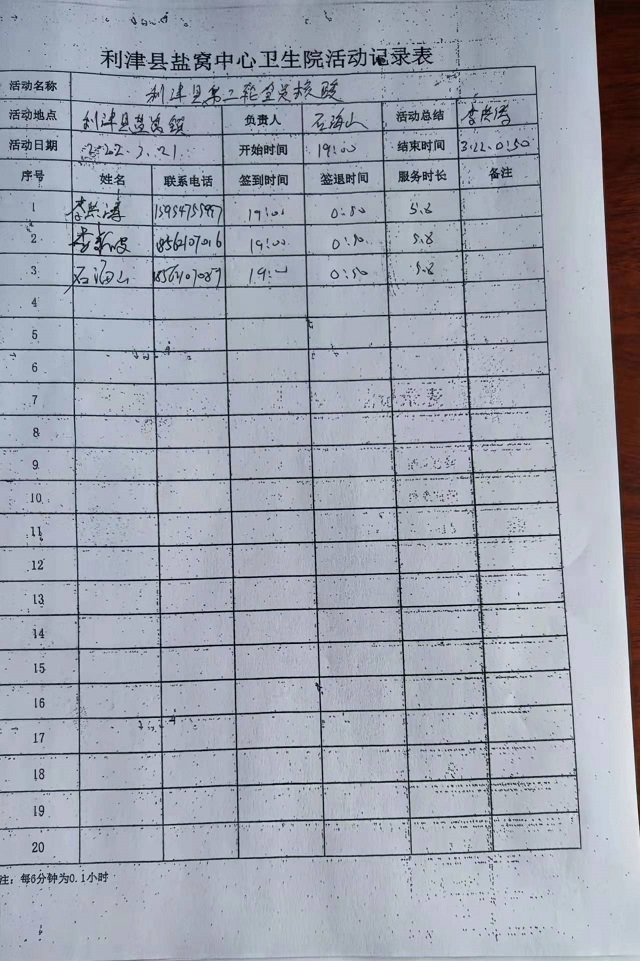 利津县盐窝中心卫生院活动记录表
活动名称 利津县第二轮全员核酸
活动地点 利津县盐窝镇 负责人 石海山 活动总结 李洪涛
活动日期 2022.3.21. 开始时间 19:00 结束时间 3.22.0:50
序号 姓名 联系电话 签到时间 签退时间 服务时长 备注
1 李洪涛 19:00 0:50 5.8
2 19:00 0:50 5.8
3 石海山 19:00 0:50 5.8
4
5
6
7
8
9
10
11
12
13
14
15
16
17
18
19
20
注：每6分钟为0.1小时